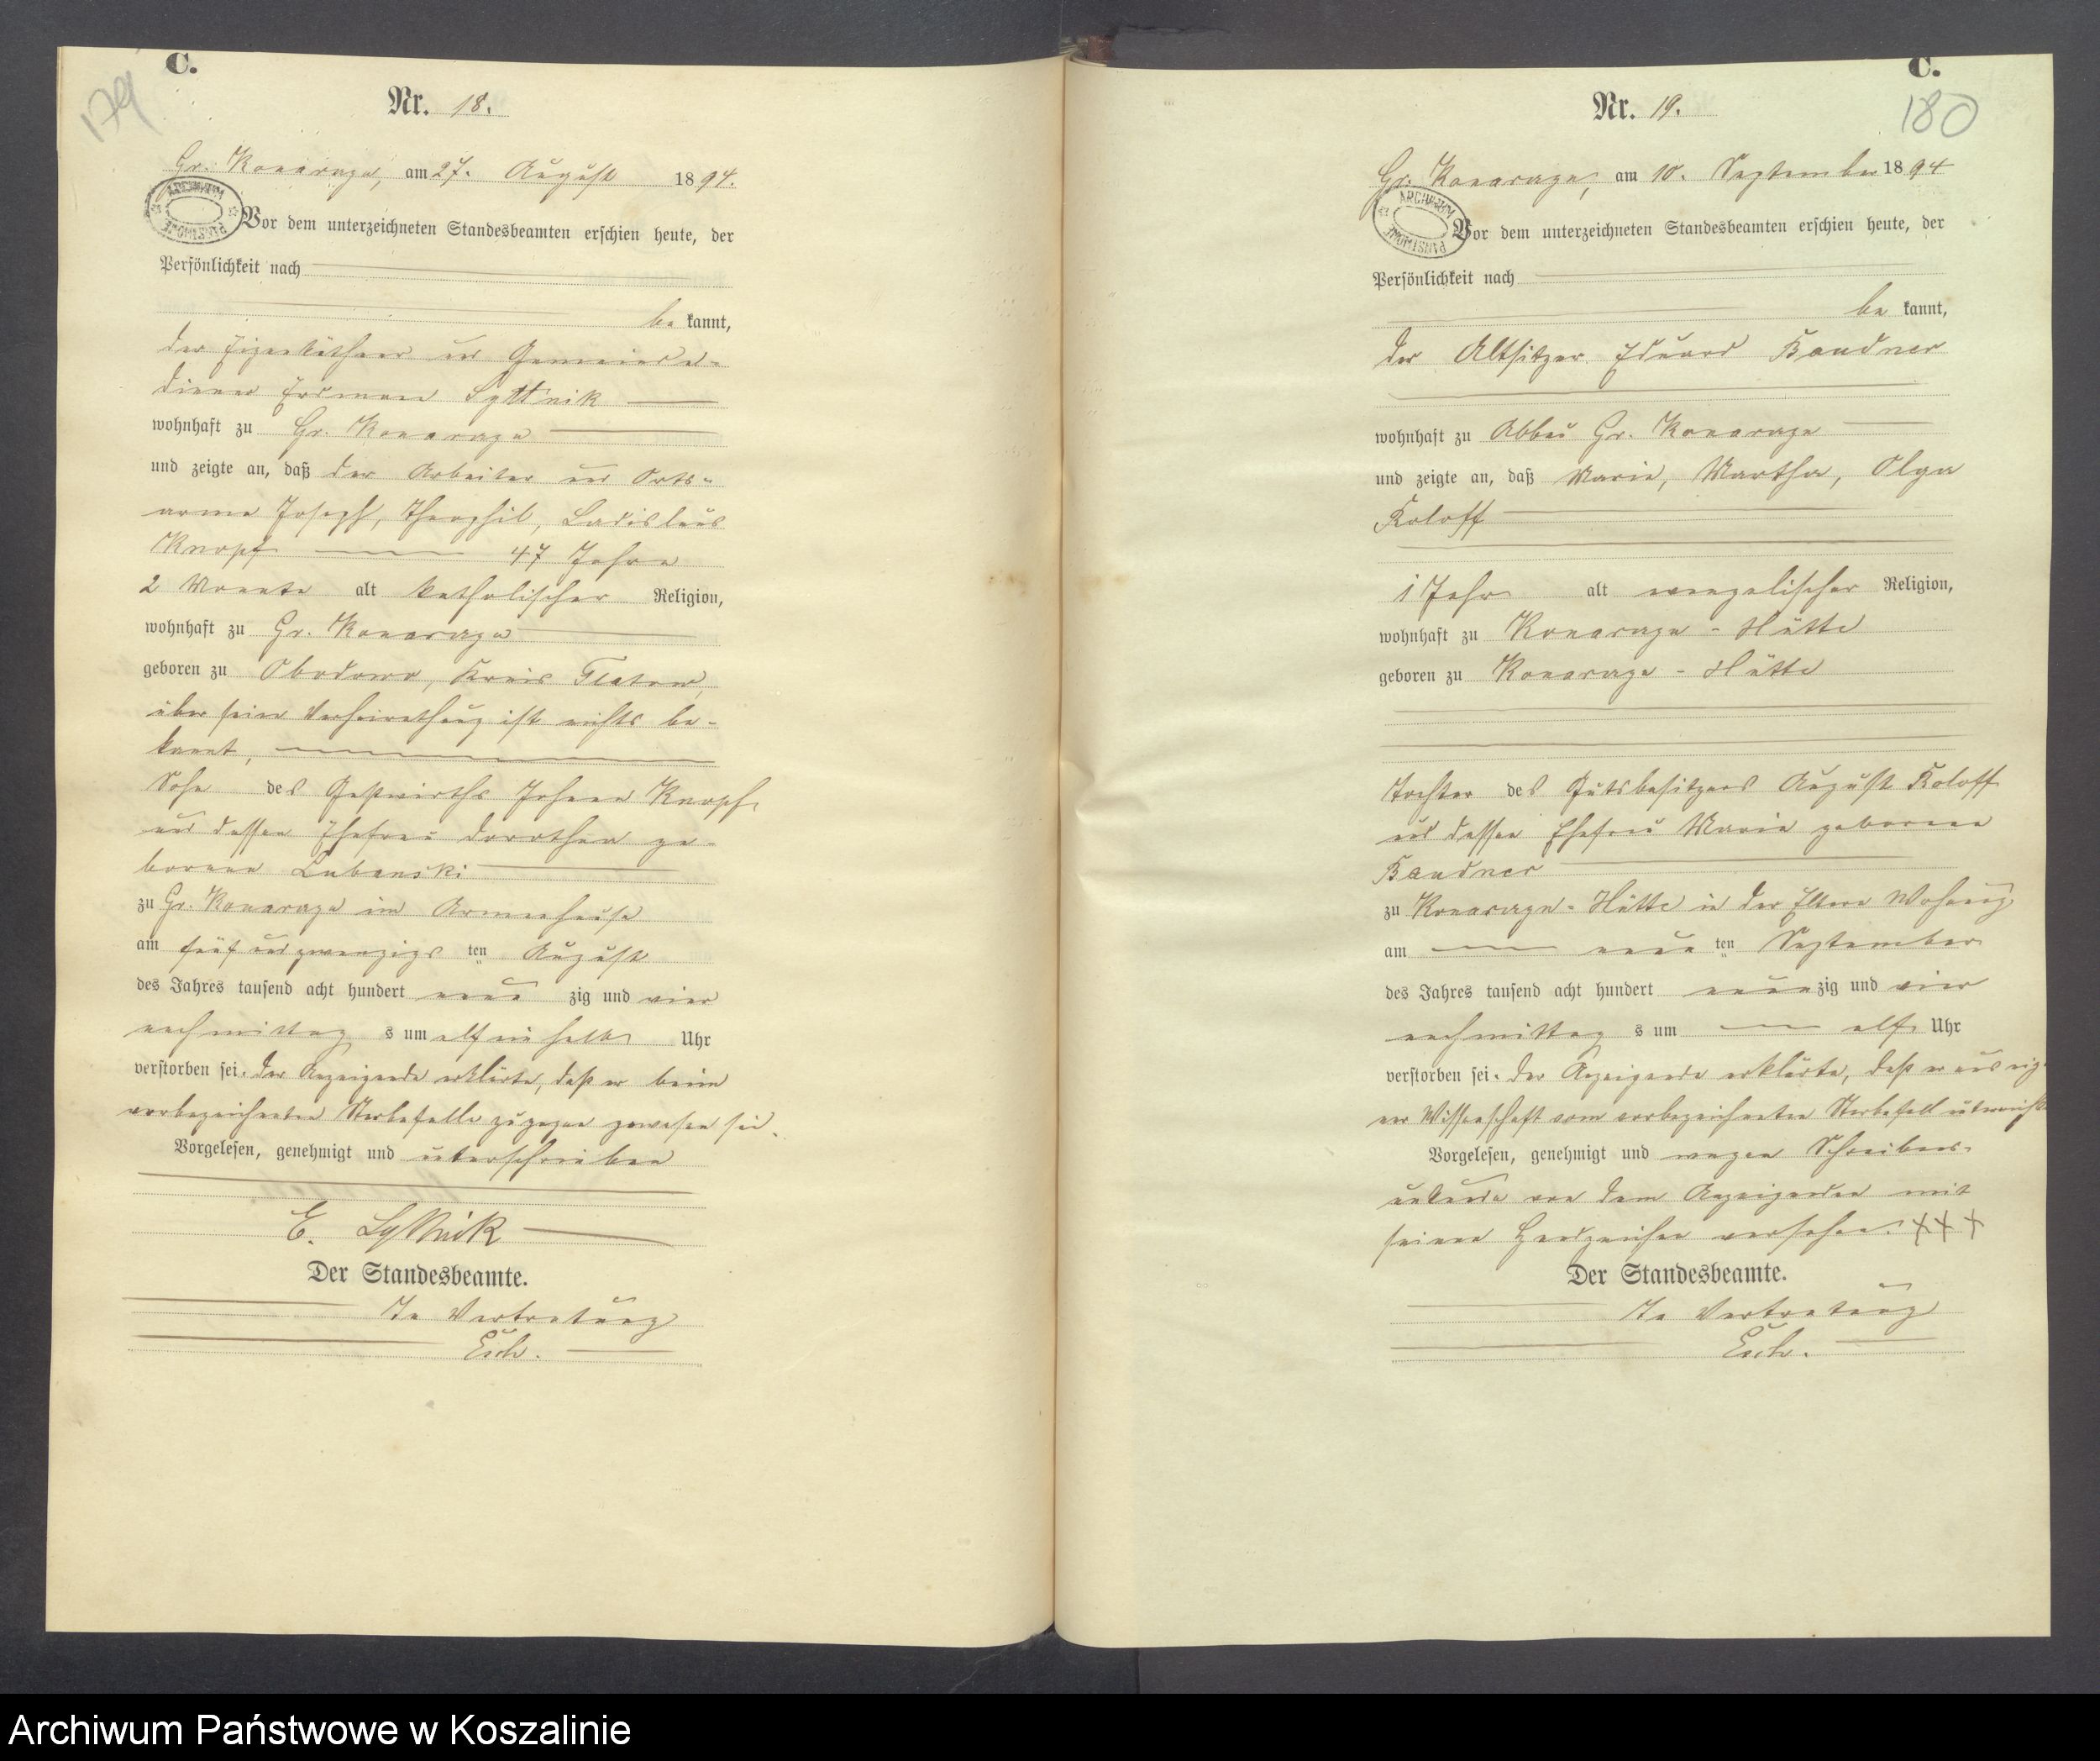 C.
179
Nr. 18.
Gr. Konarzyn, am 27. August 1894.
ARCHIWUM PAŃSTWOWE
Vor dem unterzeichneten Standesbeamten erschien heute, der
Persönlichkeit nach
be kannt,
der Eigenkäthner und Gemeinde-
diener Erdmann Lyttnik
wohnhaft zu Gr. Konarzyn
und zeigte an, daß der Arbeiter und Orts-
arme Joseph, Theophil, Ladislaus
Knopf 47 Jahre
2 Monate alt katholischer Religion,
wohnhaft zu Gr. Konarzyn
geboren zu Obodowo, Kreis Flatow,
über seine Verheirathung ist nichts be-
kannt,
Sohn des Gastwirths Johann Knopf
und dessen Ehefrau Dorothea ge-
borene Lubanski
zu Gr. Konarzyn im Armenhause
am fünf und zwanzigs ten August
des Jahres tausend acht hundert neun zig und vier
nachmittag s um elf ein halb Uhr
verstorben sei. Der Anzeigende erklärte, daß er beim
vorbezeichneten Sterbefalle zugegen gewesen sei.
Vorgelesen, genehmigt und unterschrieben
E. Lyttnik
Der Standesbeamte.
In Vertretung
C.
180
Nr. 19.
Gr. Konarzyn, am 10. September 1894
ARCHIWUM PAŃSTWOWE
Vor dem unterzeichneten Standesbeamten erschien heute, der
Persönlichkeit nach
be kannt,
der Altsitzer Eduard Bandner
wohnhaft zu Abbau Gr. Konarzyn
und zeigte an, daß Marie, Martha, Olga
Koloff
1 Jahr alt evangelischer Religion,
wohnhaft zu Konarzyn-Hütte
geboren zu Konarzyn-Hütte
Tochter des Gutsbesitzers August Koloff
und dessen Ehefrau Marie geborene
Bandner
zu Konarzyn-Hütte in der Eltern Wohnung
am neun ten September
des Jahres tausend acht hundert neunzig und vier
nachmittag s um elf Uhr
verstorben sei. Der Anzeigende erklärte, daß er aus eige-
ner Wissenschaft vom vorbezeichneten Sterbefall unterrichtet
Vorgelesen, genehmigt und wegen Schreibens-
unkunde von dem Anzeigenden mit
seinen Handzeichen versehen. +++
Der Standesbeamte.
In Vertretung
Archiwum Państwowe w Koszalinie